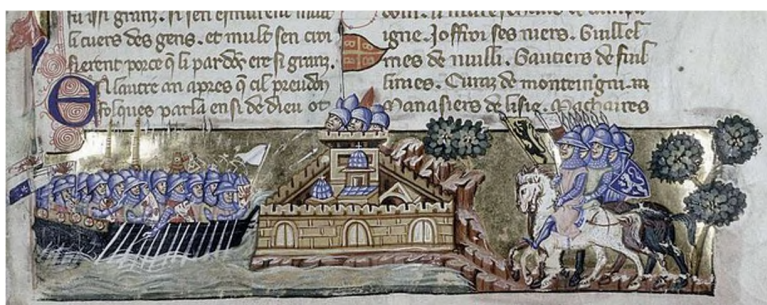 fu issi granz. si sen esmurent mult
li cuers des gens. et mult sen croi
sierent por ce q̃ li pardõs ere si granz.
En lautre an apres q̃ cil preudõ
folques parla ensi de dieu ot
igne. Joffroi ses niers. Guillel
mes de nuilli. Gautiers de fuil
lines. Euraz de monteingni.
Manasiers de lisle. Machaires